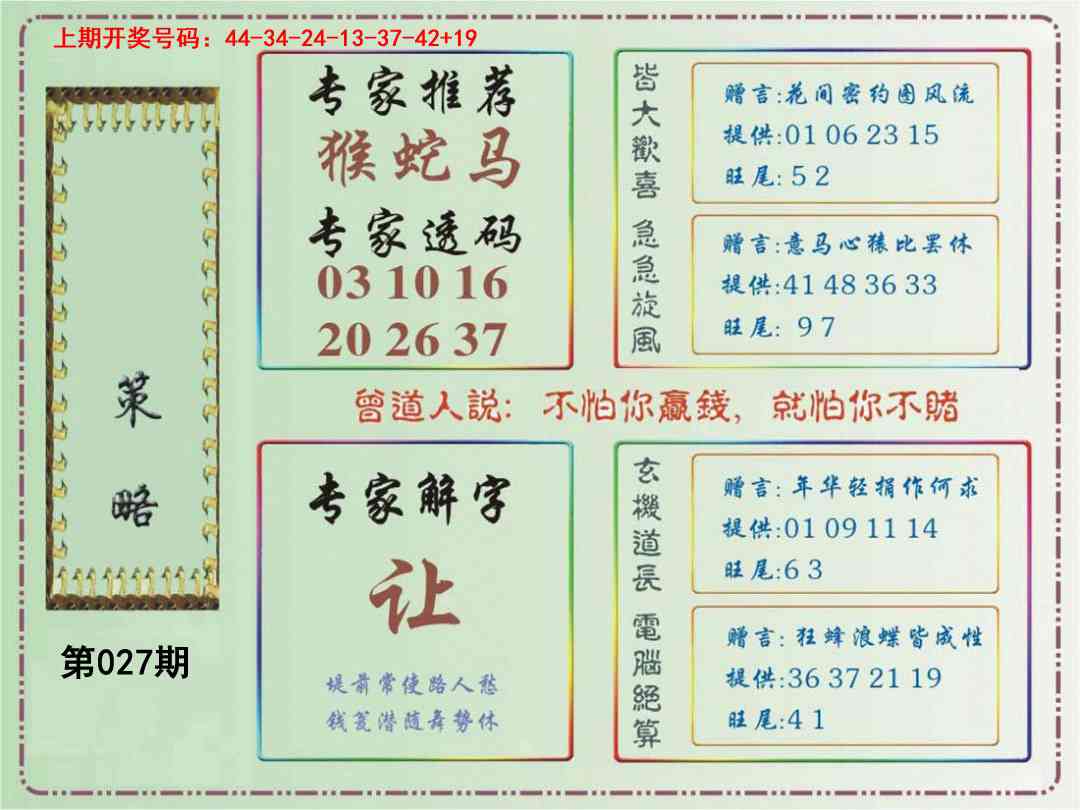 上期开奖号码：44-34-24-13-37-42+19
策略
第027期
专家推荐
猴蛇马
专家透码
03 10 16
20 26 37
皆大歡喜
赠言:花间密约图风流
提供:01 06 23 15
旺尾: 5 2
急急旋風
赠言:意马心猿比罢休
提供:41 48 36 33
旺尾: 9 7
曾道人説: 不怕你贏錢, 就怕你不賭
专家解字
让
堤前常使路人愁
钱翁潜随舞势休
玄機道長
赠言: 年华轻捐作何求
提供:01 09 11 14
旺尾:6 3
電腦絕算
赠言: 狂蜂浪蝶皆成性
提供:36 37 21 19
旺尾:4 1